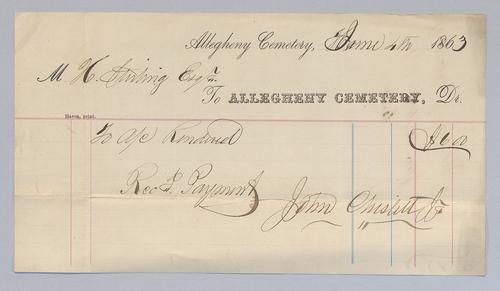 Allegheny Cemetery, June 4th 1863
M H. Stirling Esqr.
To ALLEGHENY CEMETERY, Dr.
Haven, print.
To a/c Rendered $6.00
Rec'd. Payment
John Chislett Jr